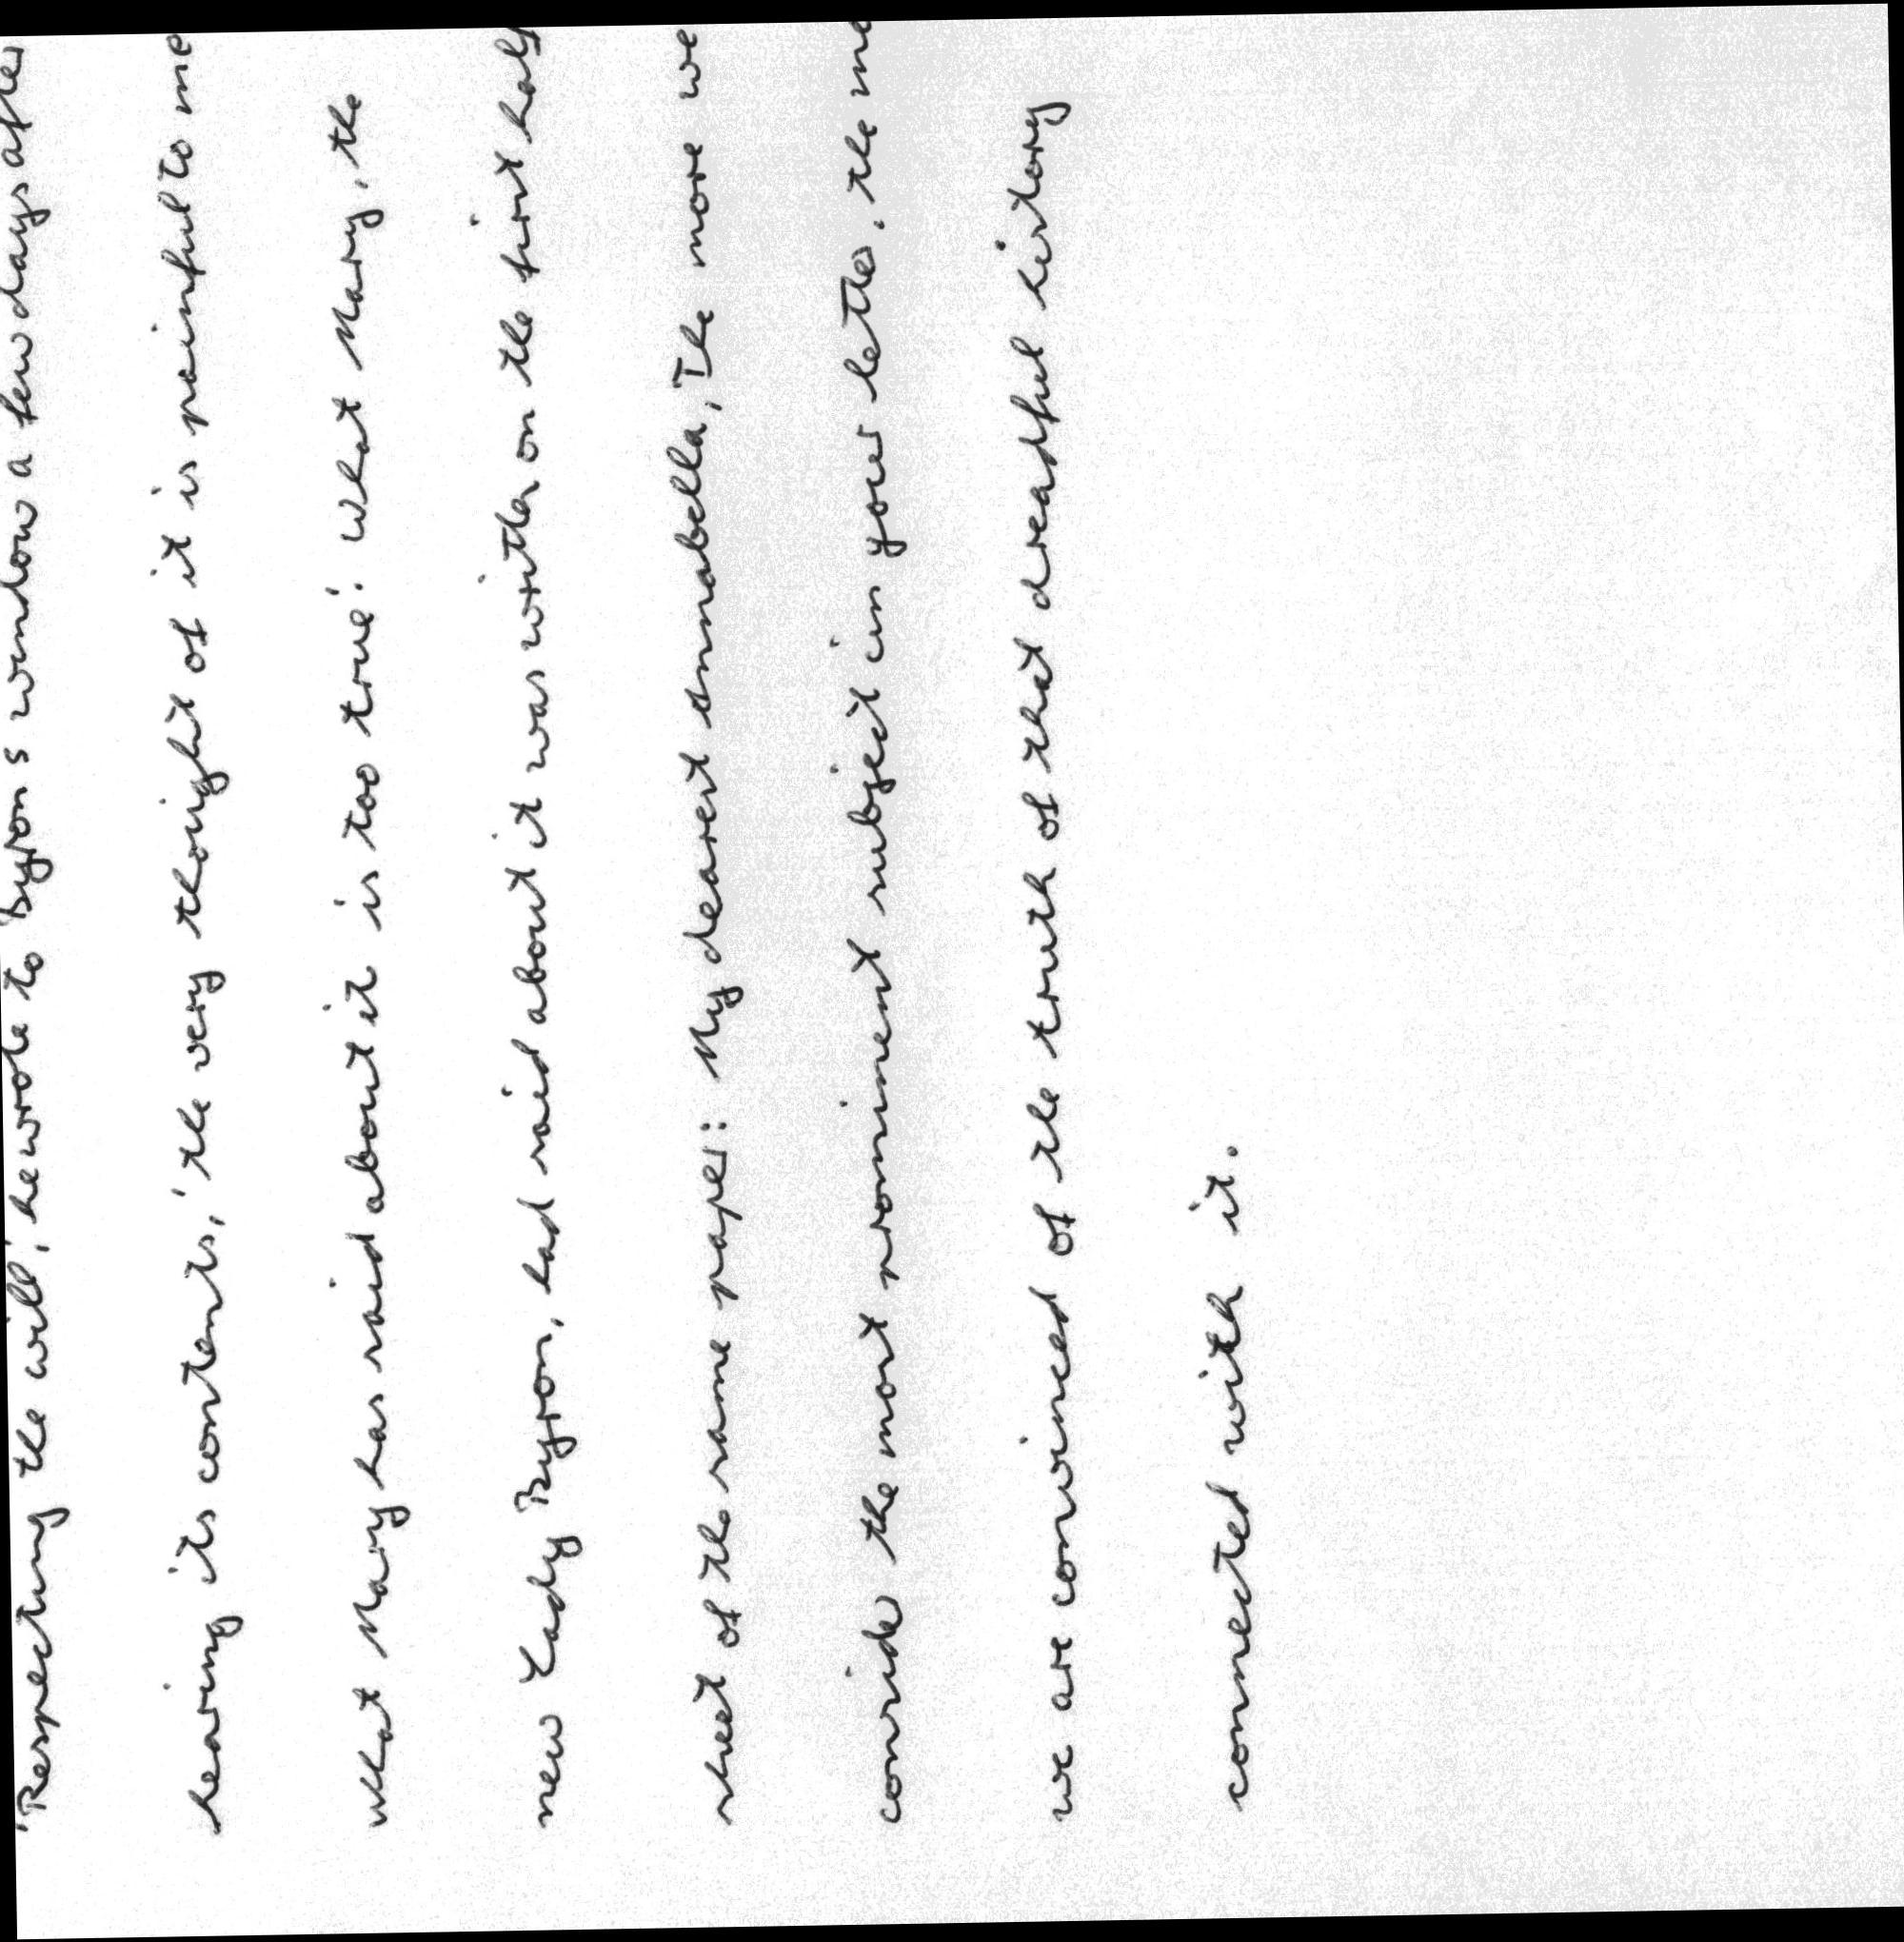 'Respecting the will,' he wrote to Byron's window a few days after
hearing its contents, 'the very thought of it is painful to me
what Mary has said about it is too true'. What Mary, the
new Lady Byron, had said about it was written on the first half
sheet of the same paper: My dearest Annabella, The more we
consider the most prominent subject in your letter, the
we are convinced of the truth of that dreadful history
connected with it.